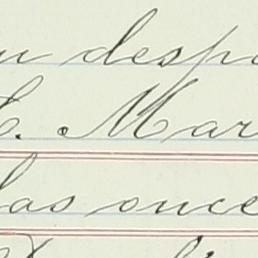 u despa
C. Mar
las once